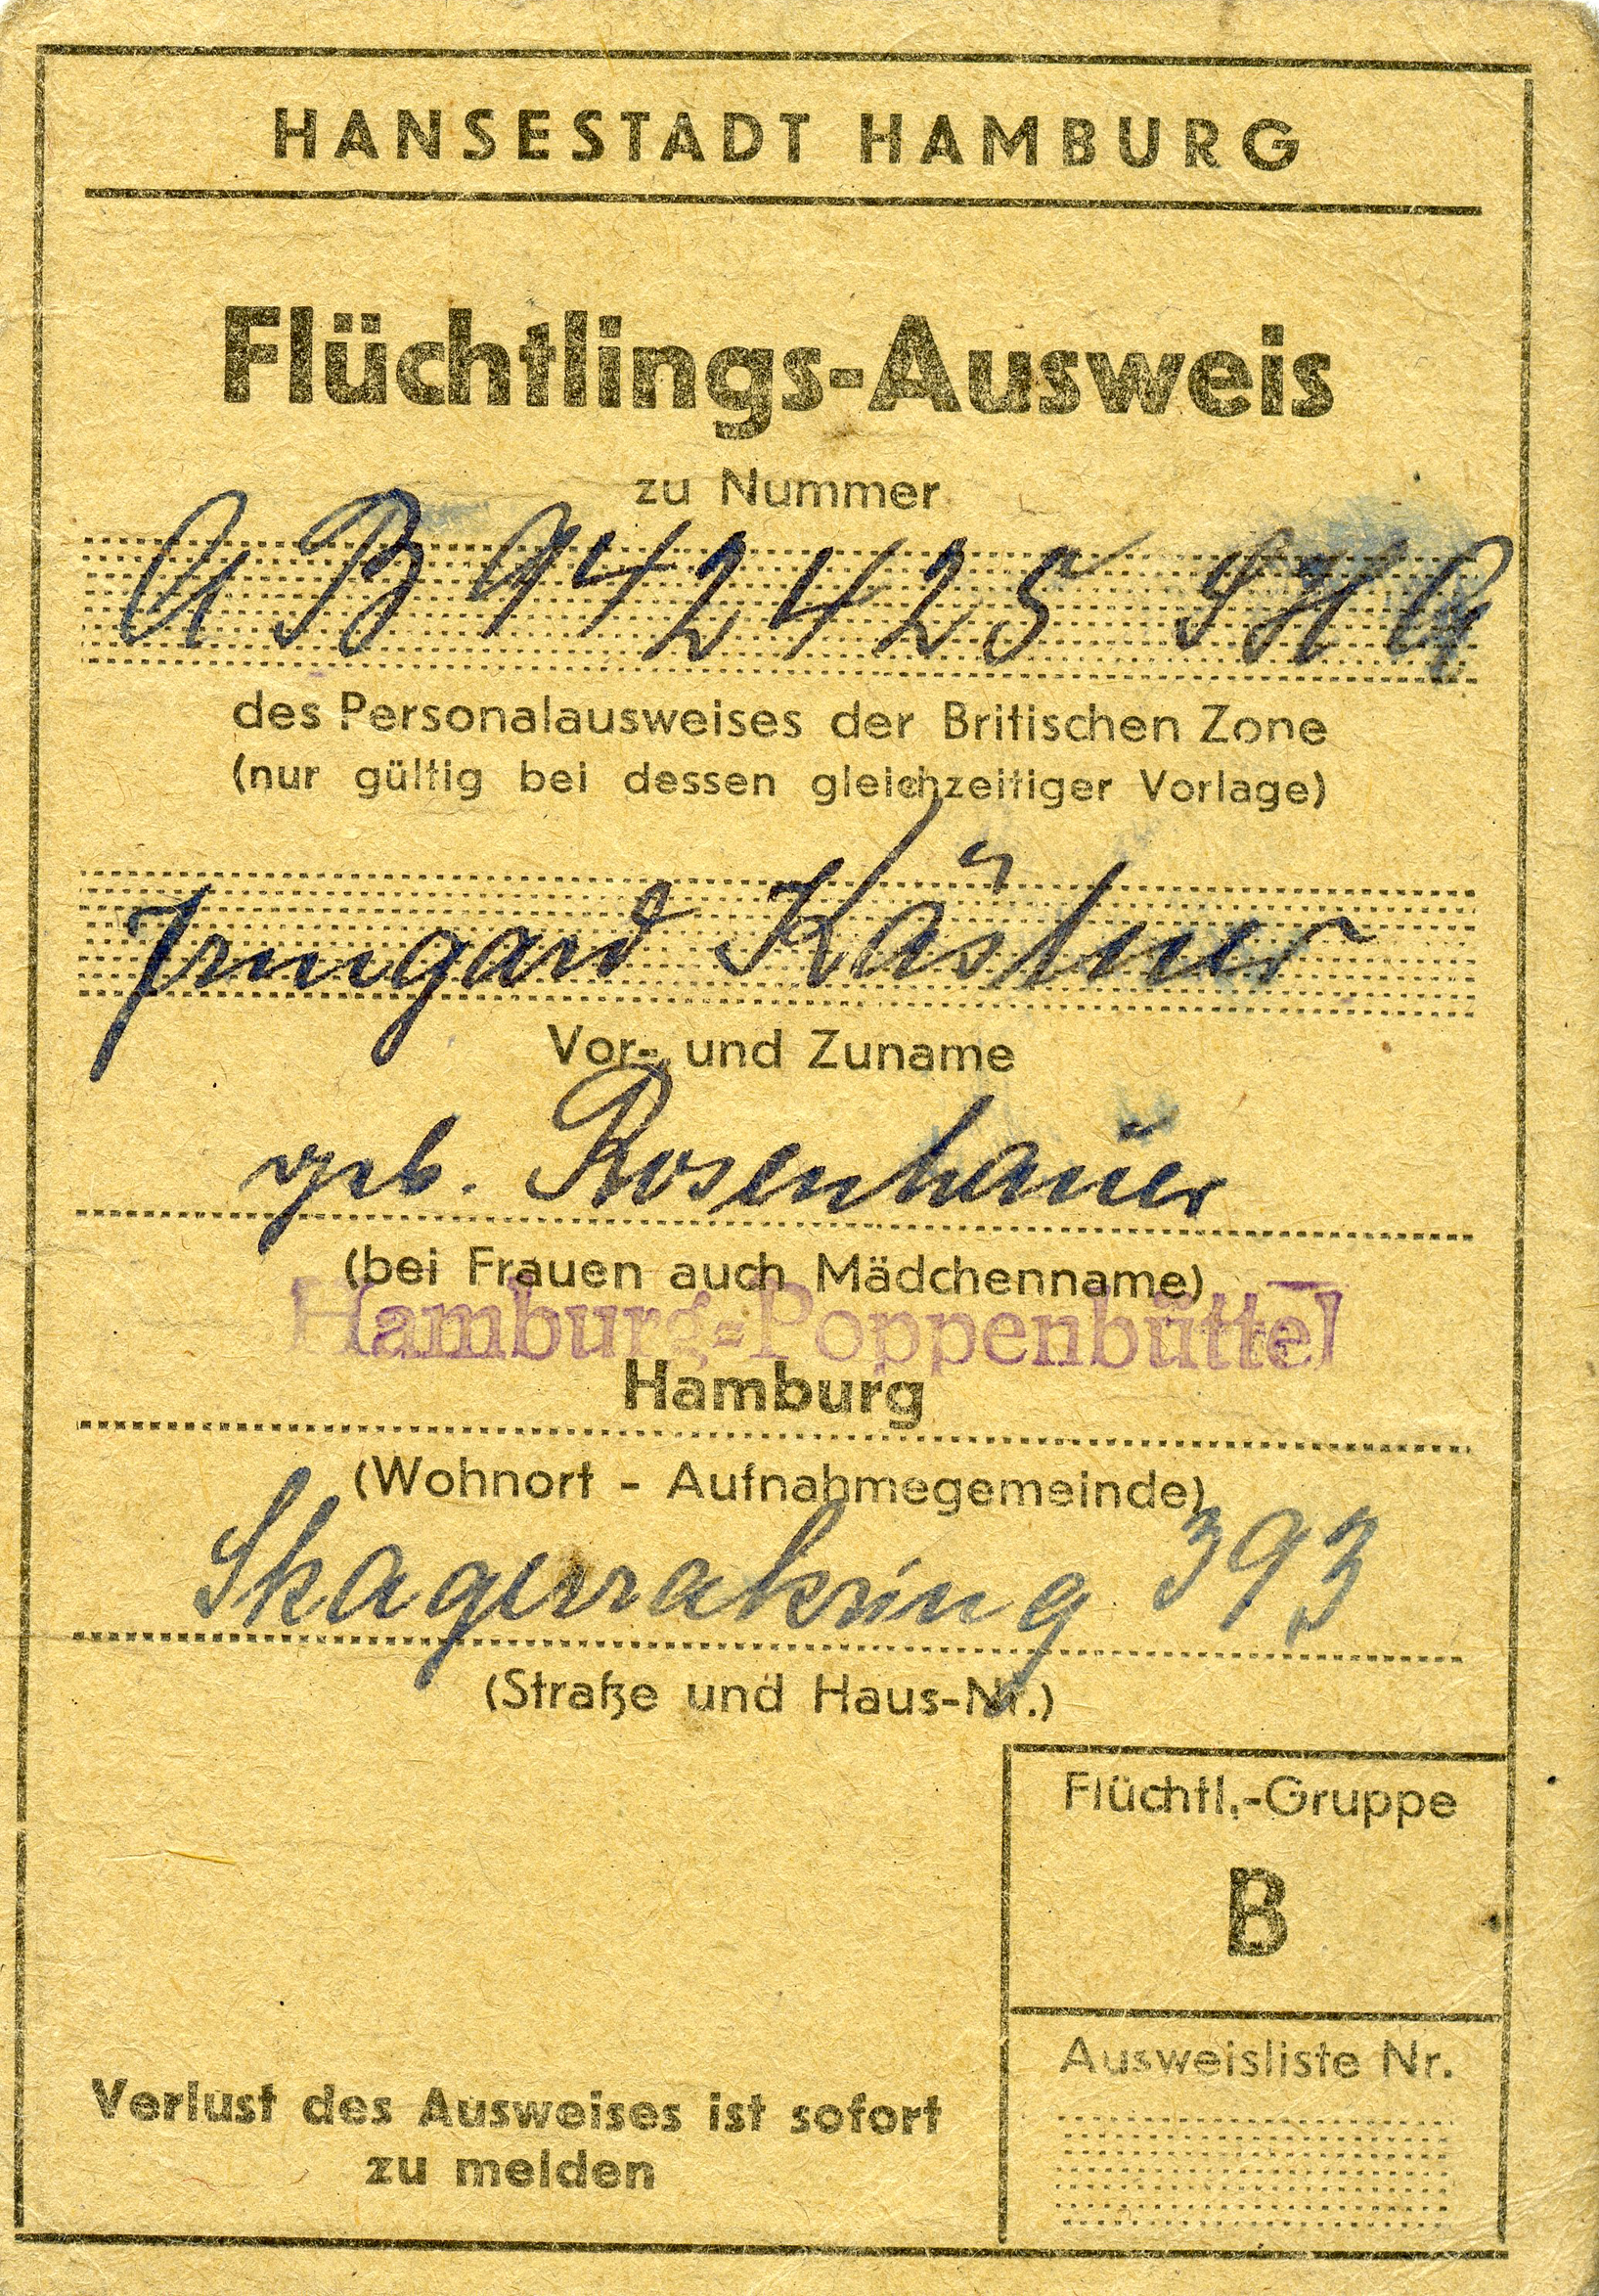 HANSESTADT HAMBURG
Flüchtlings-Ausweis
zu Nummer
AB 942425
des Personalausweises der Britischen Zone
(nur gültig bei dessen gleichzeitiger Vorlage)
Irmgard Kästner
Vor- und Zuname
geb. Rosenhauer
(bei Frauen auch Mädchenname)
Hamburg-Poppenbüttel
Hamburg
(Wohnort - Aufnahmegemeinde)
Skagerrakring 393
(Straße und Haus-Nr.)
Flüchtl.-Gruppe
B
Ausweisliste Nr.
Verlust des Ausweises ist sofort
zu melden